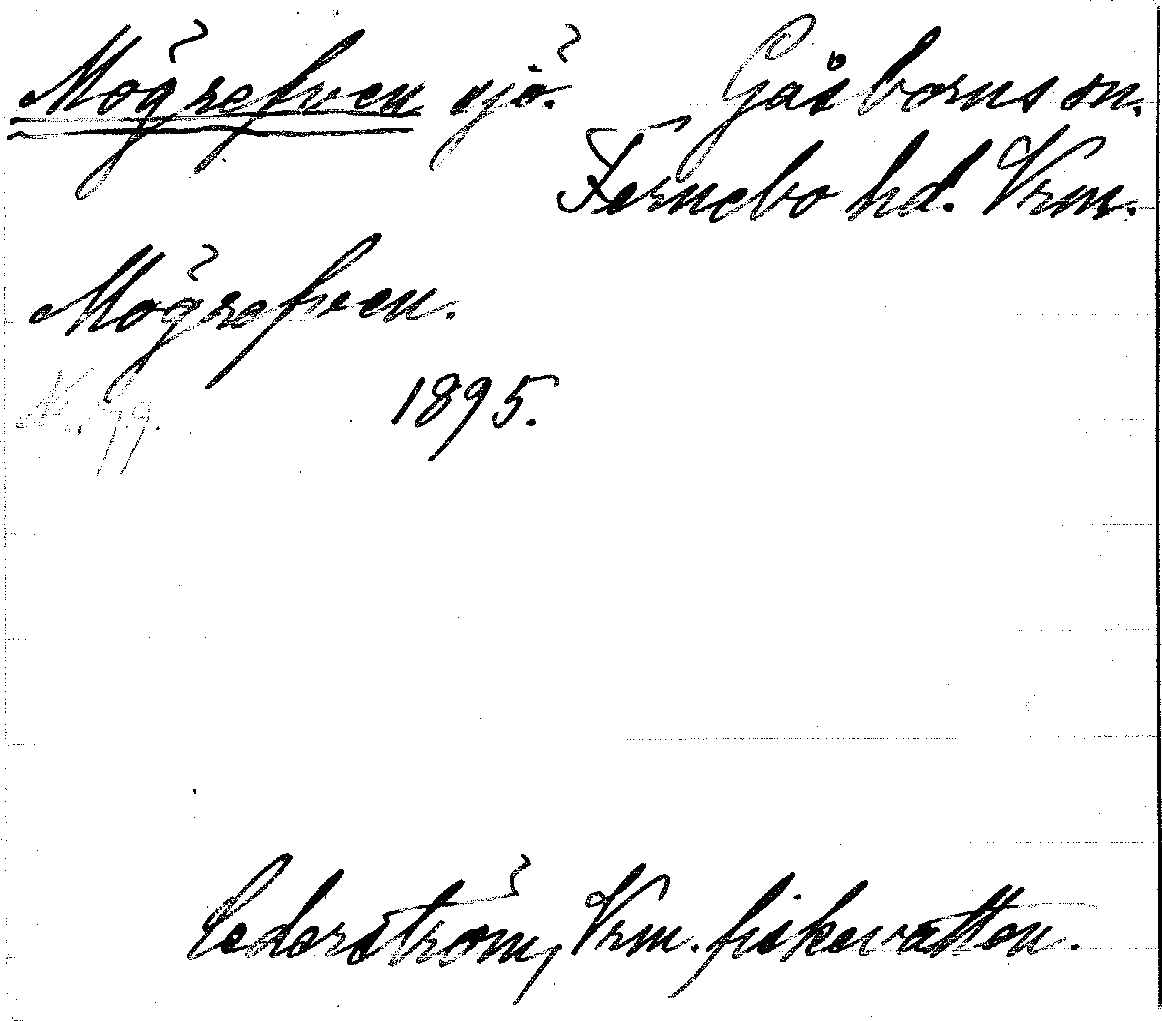 Mögrefven sjö. Gåsborns sn.
Fernebo hd. Vrm.
Mögrefven.
1895.
Cederström, Vrm. fiskevatten.